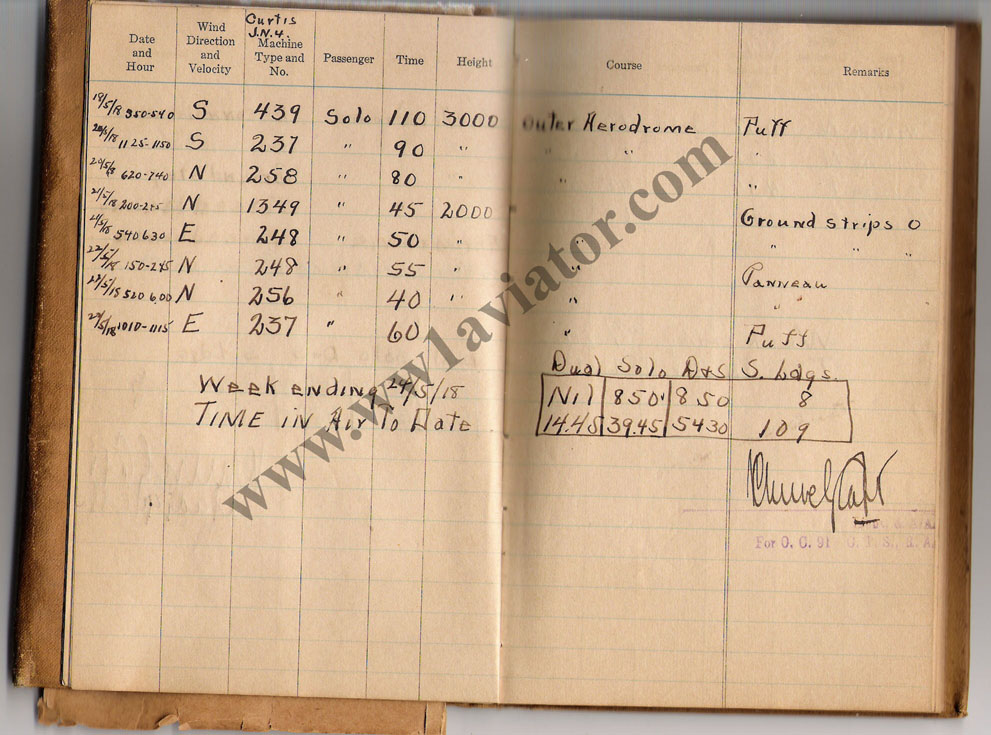 Curtis
J.N.4.
Date and Hour Wind Direction and Velocity Machine Type and No. Passenger Time Height Course Remarks
19/5/18 350-540 S 439 Solo 110 3000 Outer Aerodrome Puff
20/5/18 1125-1150 S 237 " 90 " " "
20/5/18 620-740 N 258 " 80 " " "
21/5/18 200-245 N 1349 " 45 2000 Ground strips 0
21/5/18 540 630 E 248 " 50 " " " "
22/5/18 150-245 N 248 " 55 " " Panneau
22/5/18 520 6.00 N 256 " 40 " " "
24/5/18 1010-1115 E 237 " 60 " Puff
Dual Solo D&S S. Ldgs.
Week ending 24/5/18 Nil 850 850 8
TIME in Air To Date 14.45 39.45 5430 109
Capt
For O. C. 91
www.ww1aviator.com